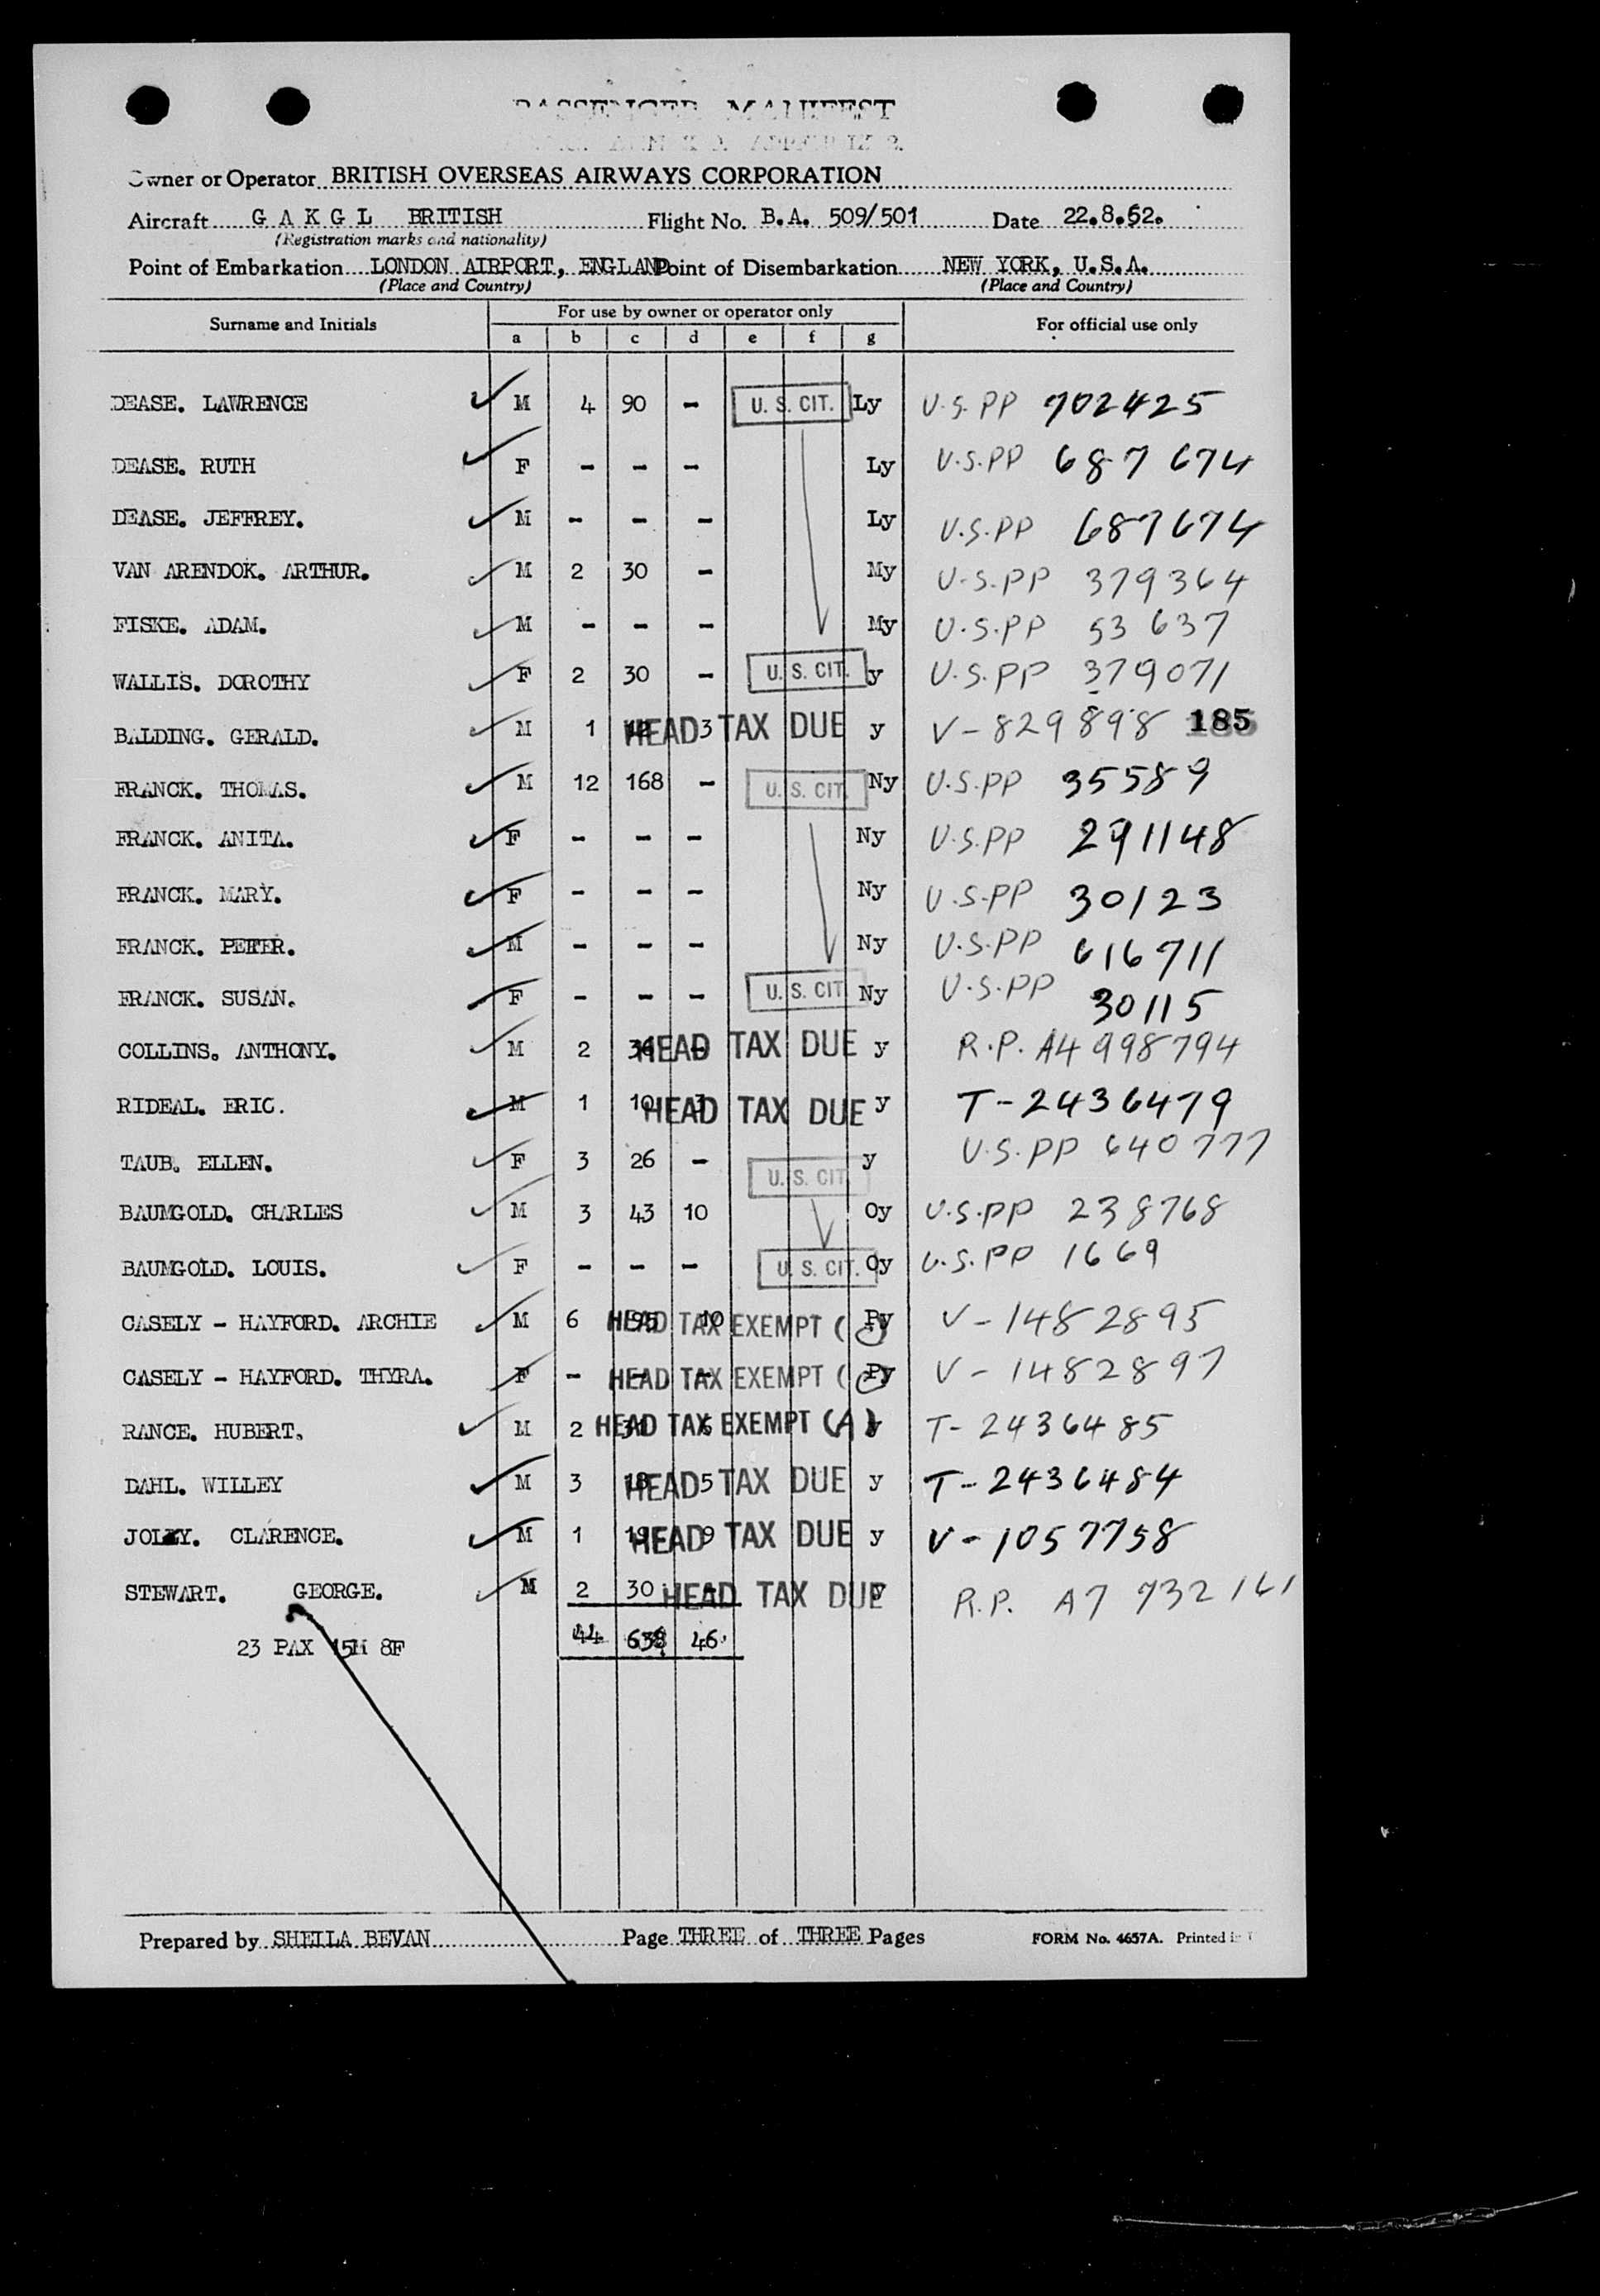 PASSENGER MANIFEST
Owner or Operator BRITISH OVERSEAS AIRWAYS CORPORATION
Aircraft G A K G L BRITISH Flight No. B.A. 509/501 Date 22.8.52.
(Registration marks and nationality)
Point of Embarkation LONDON AIRPORT, ENGLAND Point of Disembarkation NEW YORK, U.S.A.
(Place and Country) (Place and Country)
Surname and Initials For use by owner or operator only For official use only
a b c d e f g
DEASE. LAWRENCE M 4 90 - U. S. CIT. Ly U.S. PP 702425
DEASE. RUTH F - - - Ly U.S.PP 687674
DEASE. JEFFREY. M - - - Ly U.S.PP 687674
VAN ARENDOK. ARTHUR. M 2 30 - My U.S.PP 379364
FISKE. ADAM. M - - - My U.S.PP 53637
WALLIS. DOROTHY F 2 30 - U. S. CIT. y U.S.PP 379071
BALDING. GERALD. M 1 12 3 HEAD TAX DUE y V-829898 185
FRANCK. THOMAS. M 12 168 - U. S. CIT. Ny U.S.PP 35589
FRANCK. ANITA. F - - - Ny U.S.PP 291148
FRANCK. MARY. F - - - Ny U.S.PP 30123
FRANCK. PETER. M - - - Ny U.S.PP 616711
FRANCK. SUSAN. F - - - U. S. CIT Ny U.S.PP 30115
COLLINS. ANTHONY. M 2 HEAD TAX DUE y R.P. A4 998794
RIDEAL. ERIC. M 1 10 3 HEAD TAX DUE y T-2436479
TAUB. ELLEN. F 3 26 - U. S. CIT y U.S.PP 640777
BAUMGOLD. CHARLES M 3 43 10 Oy U.S.PP 238768
BAUMGOLD. LOUIS. F - - - U. S. CIT. Oy U.S.PP 1669
CASELY - HAYFORD. ARCHIE M 6 95 10 HEAD TAX EXEMPT ( ) Py V-1482895
CASELY - HAYFORD. THYRA. F - - - HEAD TAX EXEMPT ( ) Py V-1482897
RANCE. HUBERT. M 2 HEAD TAX EXEMPT (A) y T-2436485
DAHL. WILLEY M 3 18 5 HEAD TAX DUE y T-2436484
JOLLY. CLARENCE. M 1 19 9 HEAD TAX DUE y V-1057758
STEWART. GEORGE. M 2 30 - HEAD TAX DUE y R.P. A7 732161
23 PAX 15M 8F 44 638 46
Prepared by SHEILA BEVAN Page THREE of THREE Pages FORM No. 4657A. Printed in